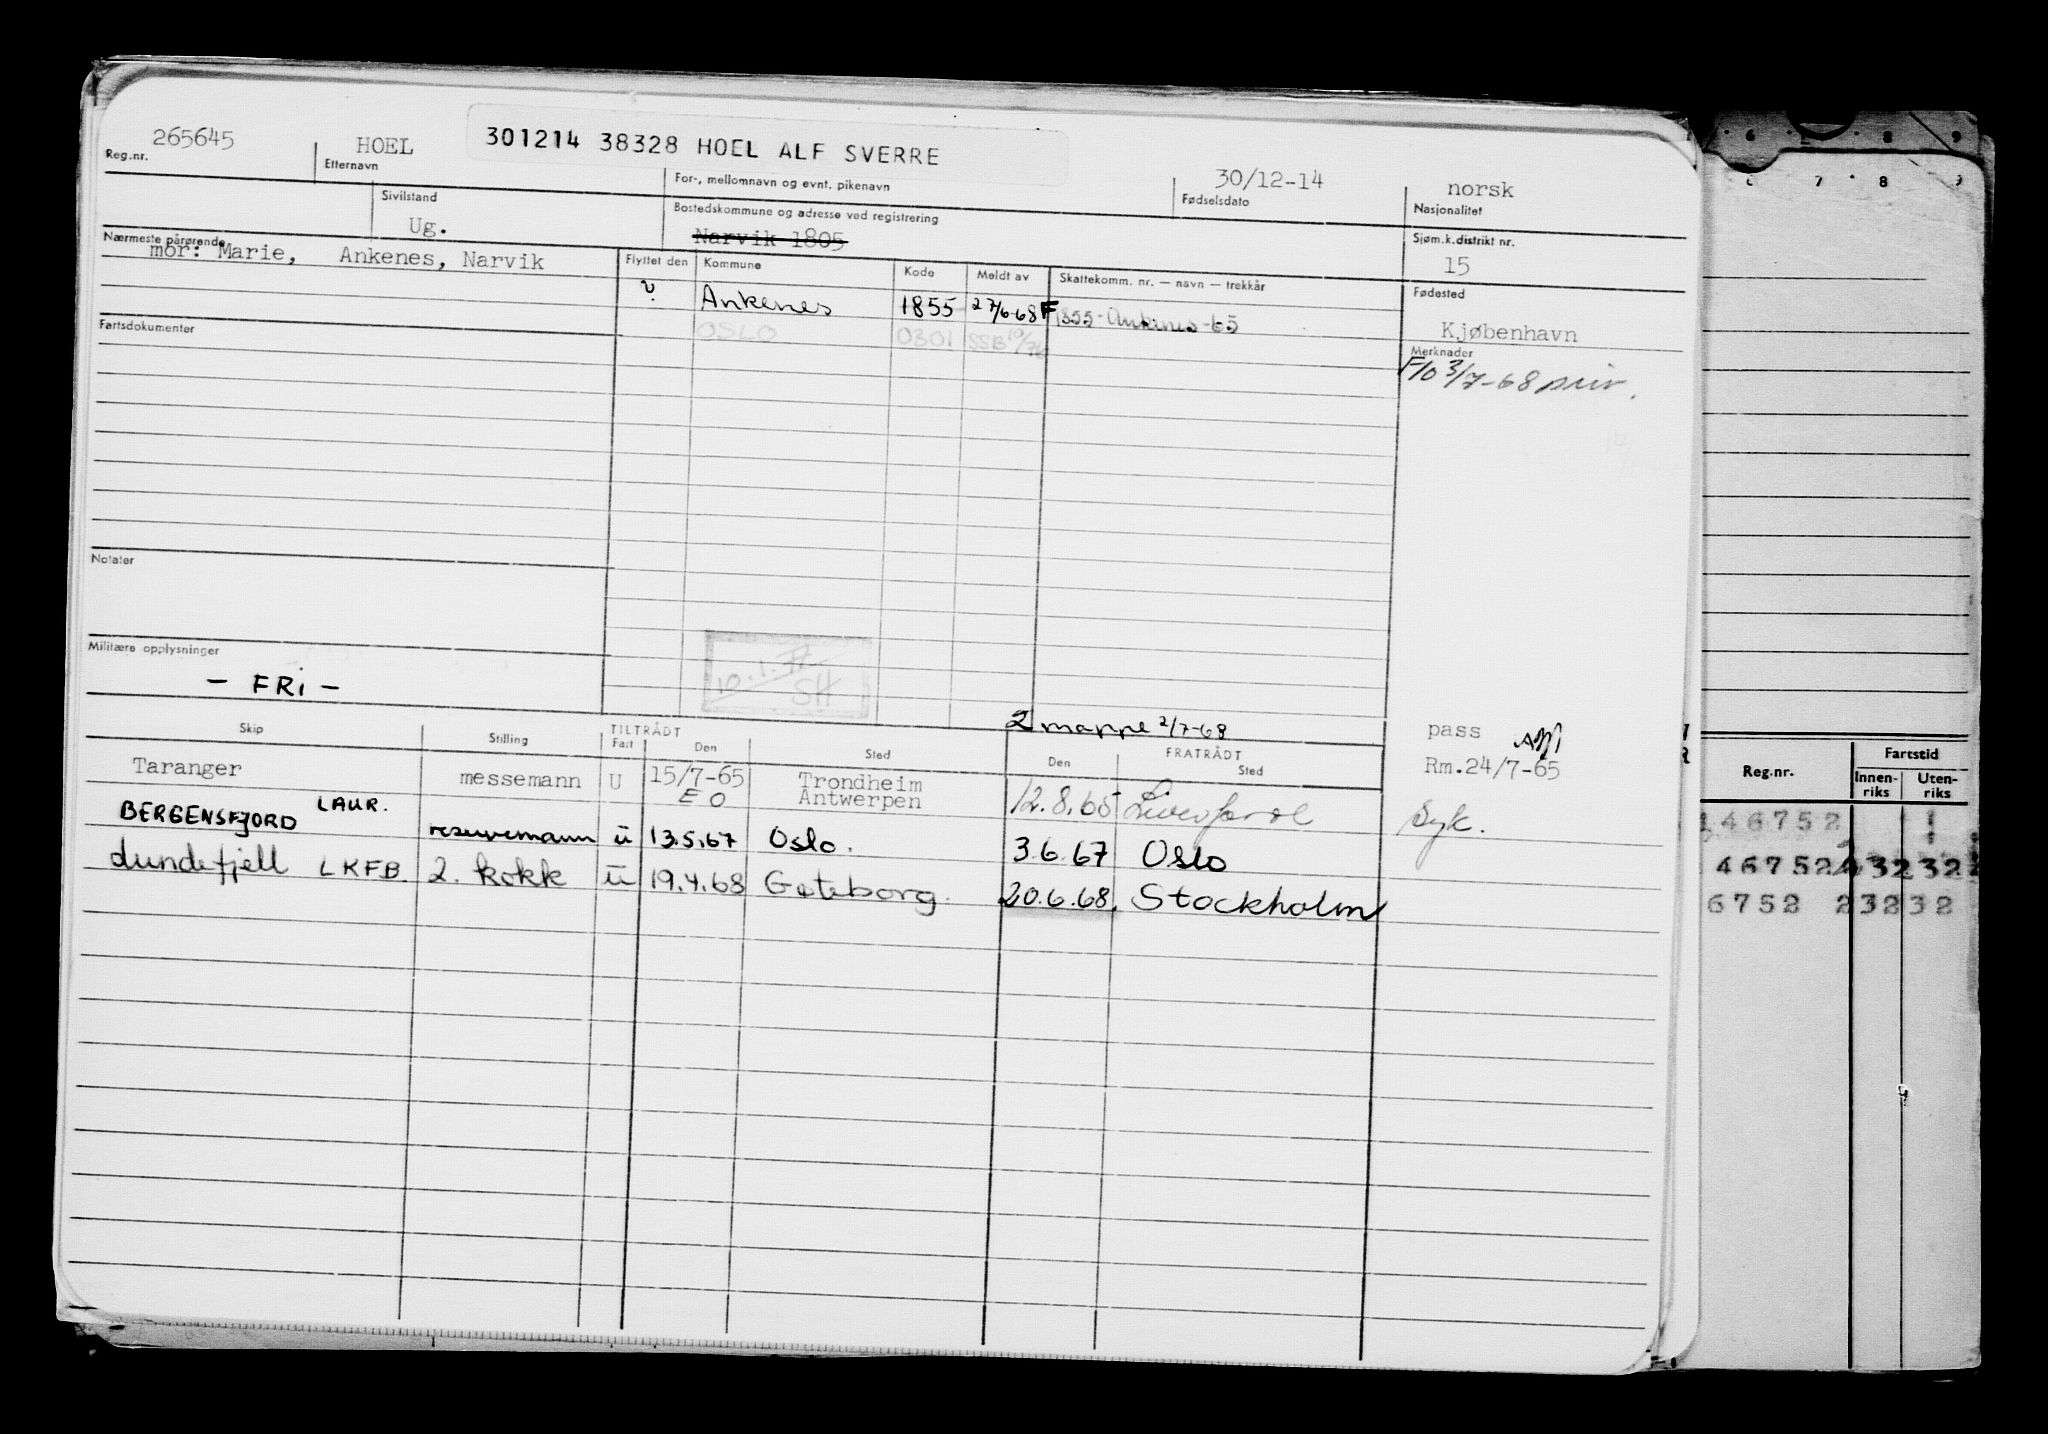 265645 HOEL 301214 38328 HOEL ALF SVERRE 30/12-14 norsk
Reg.nr. Etternavn For-, mellomnavn og evnt. pikenavn Fødselsdato Nasjonalitet
Sivilstand Bostedskommune og adresse ved registrering Sjøm.k.distrikt nr.
Ug. Narvik 1805 15
Nærmeste pårørende
mor: Marie, Ankenes, Narvik
Flyttet den Kommune Kode Meldt av Skattekomm. nr. — navn — trekkår Fødested
Ankenes 1855 27/6-68 F 1855-Ankenes-65 Kjøbenhavn
Fartsdokumenter OSLO 0301 SSB 10/76 Merknader
3/7-68
Notater
Militære opplysninger
- FRI -
10.1.77
SH
2 mappe 2/7-68
Skip Stilling TILTRÅDT FRATRÅDT pass
Fart Den Sted Den Sted Rm.24/7-65
Taranger messemann U 15/7-65 Trondheim
E O Antwerpen 12.8.65 Liverpool Syk.
BERGENSFJORD LAUR. reservemann u 13.5.67 Oslo. 3.6.67 Oslo
Lundefjell LKFB 2. kokk u 19.4.68 Gøteborg. 20.6.68. Stockholm
6 8 9
7 8 9
Reg.nr. Fartstid
Innen-riks Uten-riks
46752
46752 232 32
6752 232 32